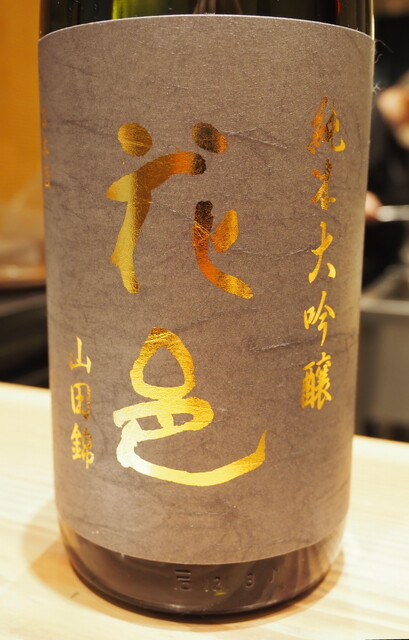 純米大吟醸
花邑
山田錦